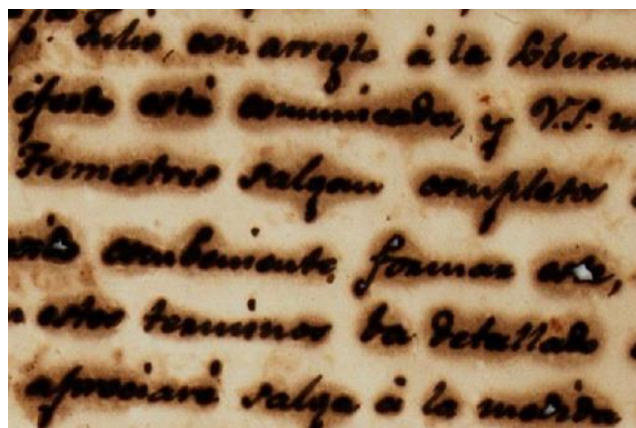 p. Julio, con arreglo á la soberan
efecto está comunicada, y V.S. u
Tremestres salgan completos
combeniente formar este,
estos terminos ba detallado
apreciaré salga á la medida